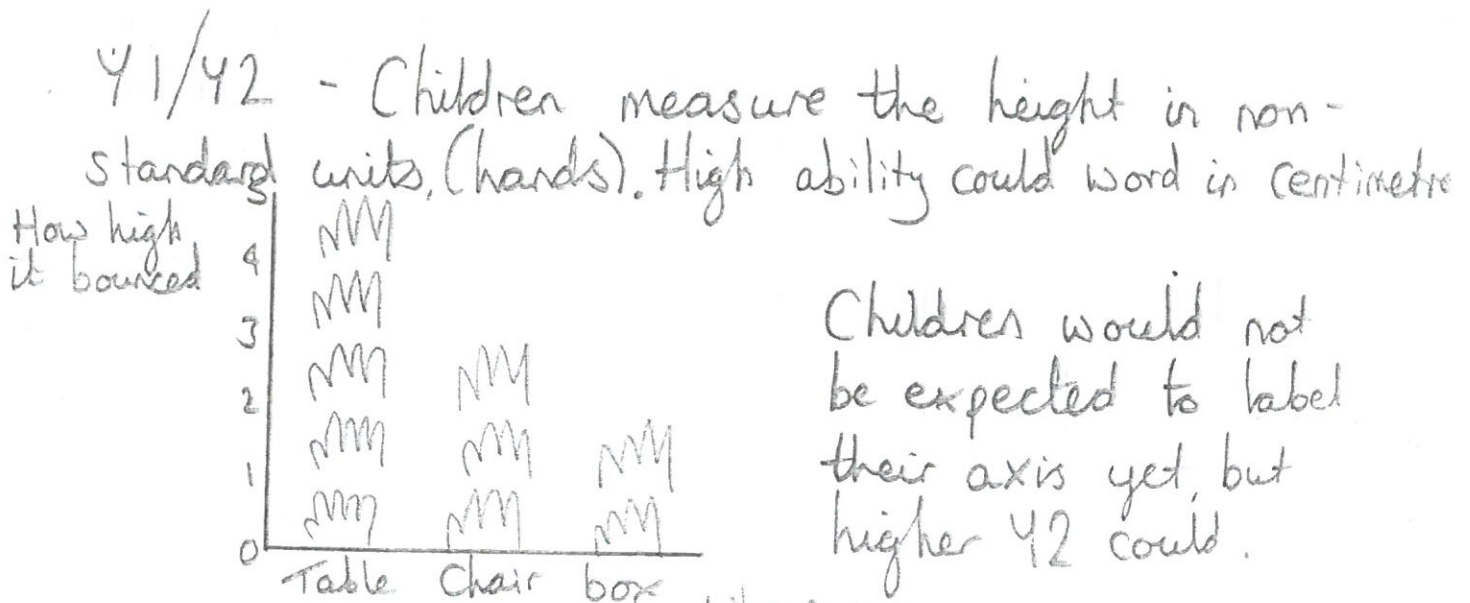 Y1/Y2 - Children measure the height in non-
standard units, (hands). High ability could word in centimetre
How high
it bounced
5
4
3
2
1
0
Table Chair box
Children would not
be expected to label
their axis yet, but
higher Y2 could.